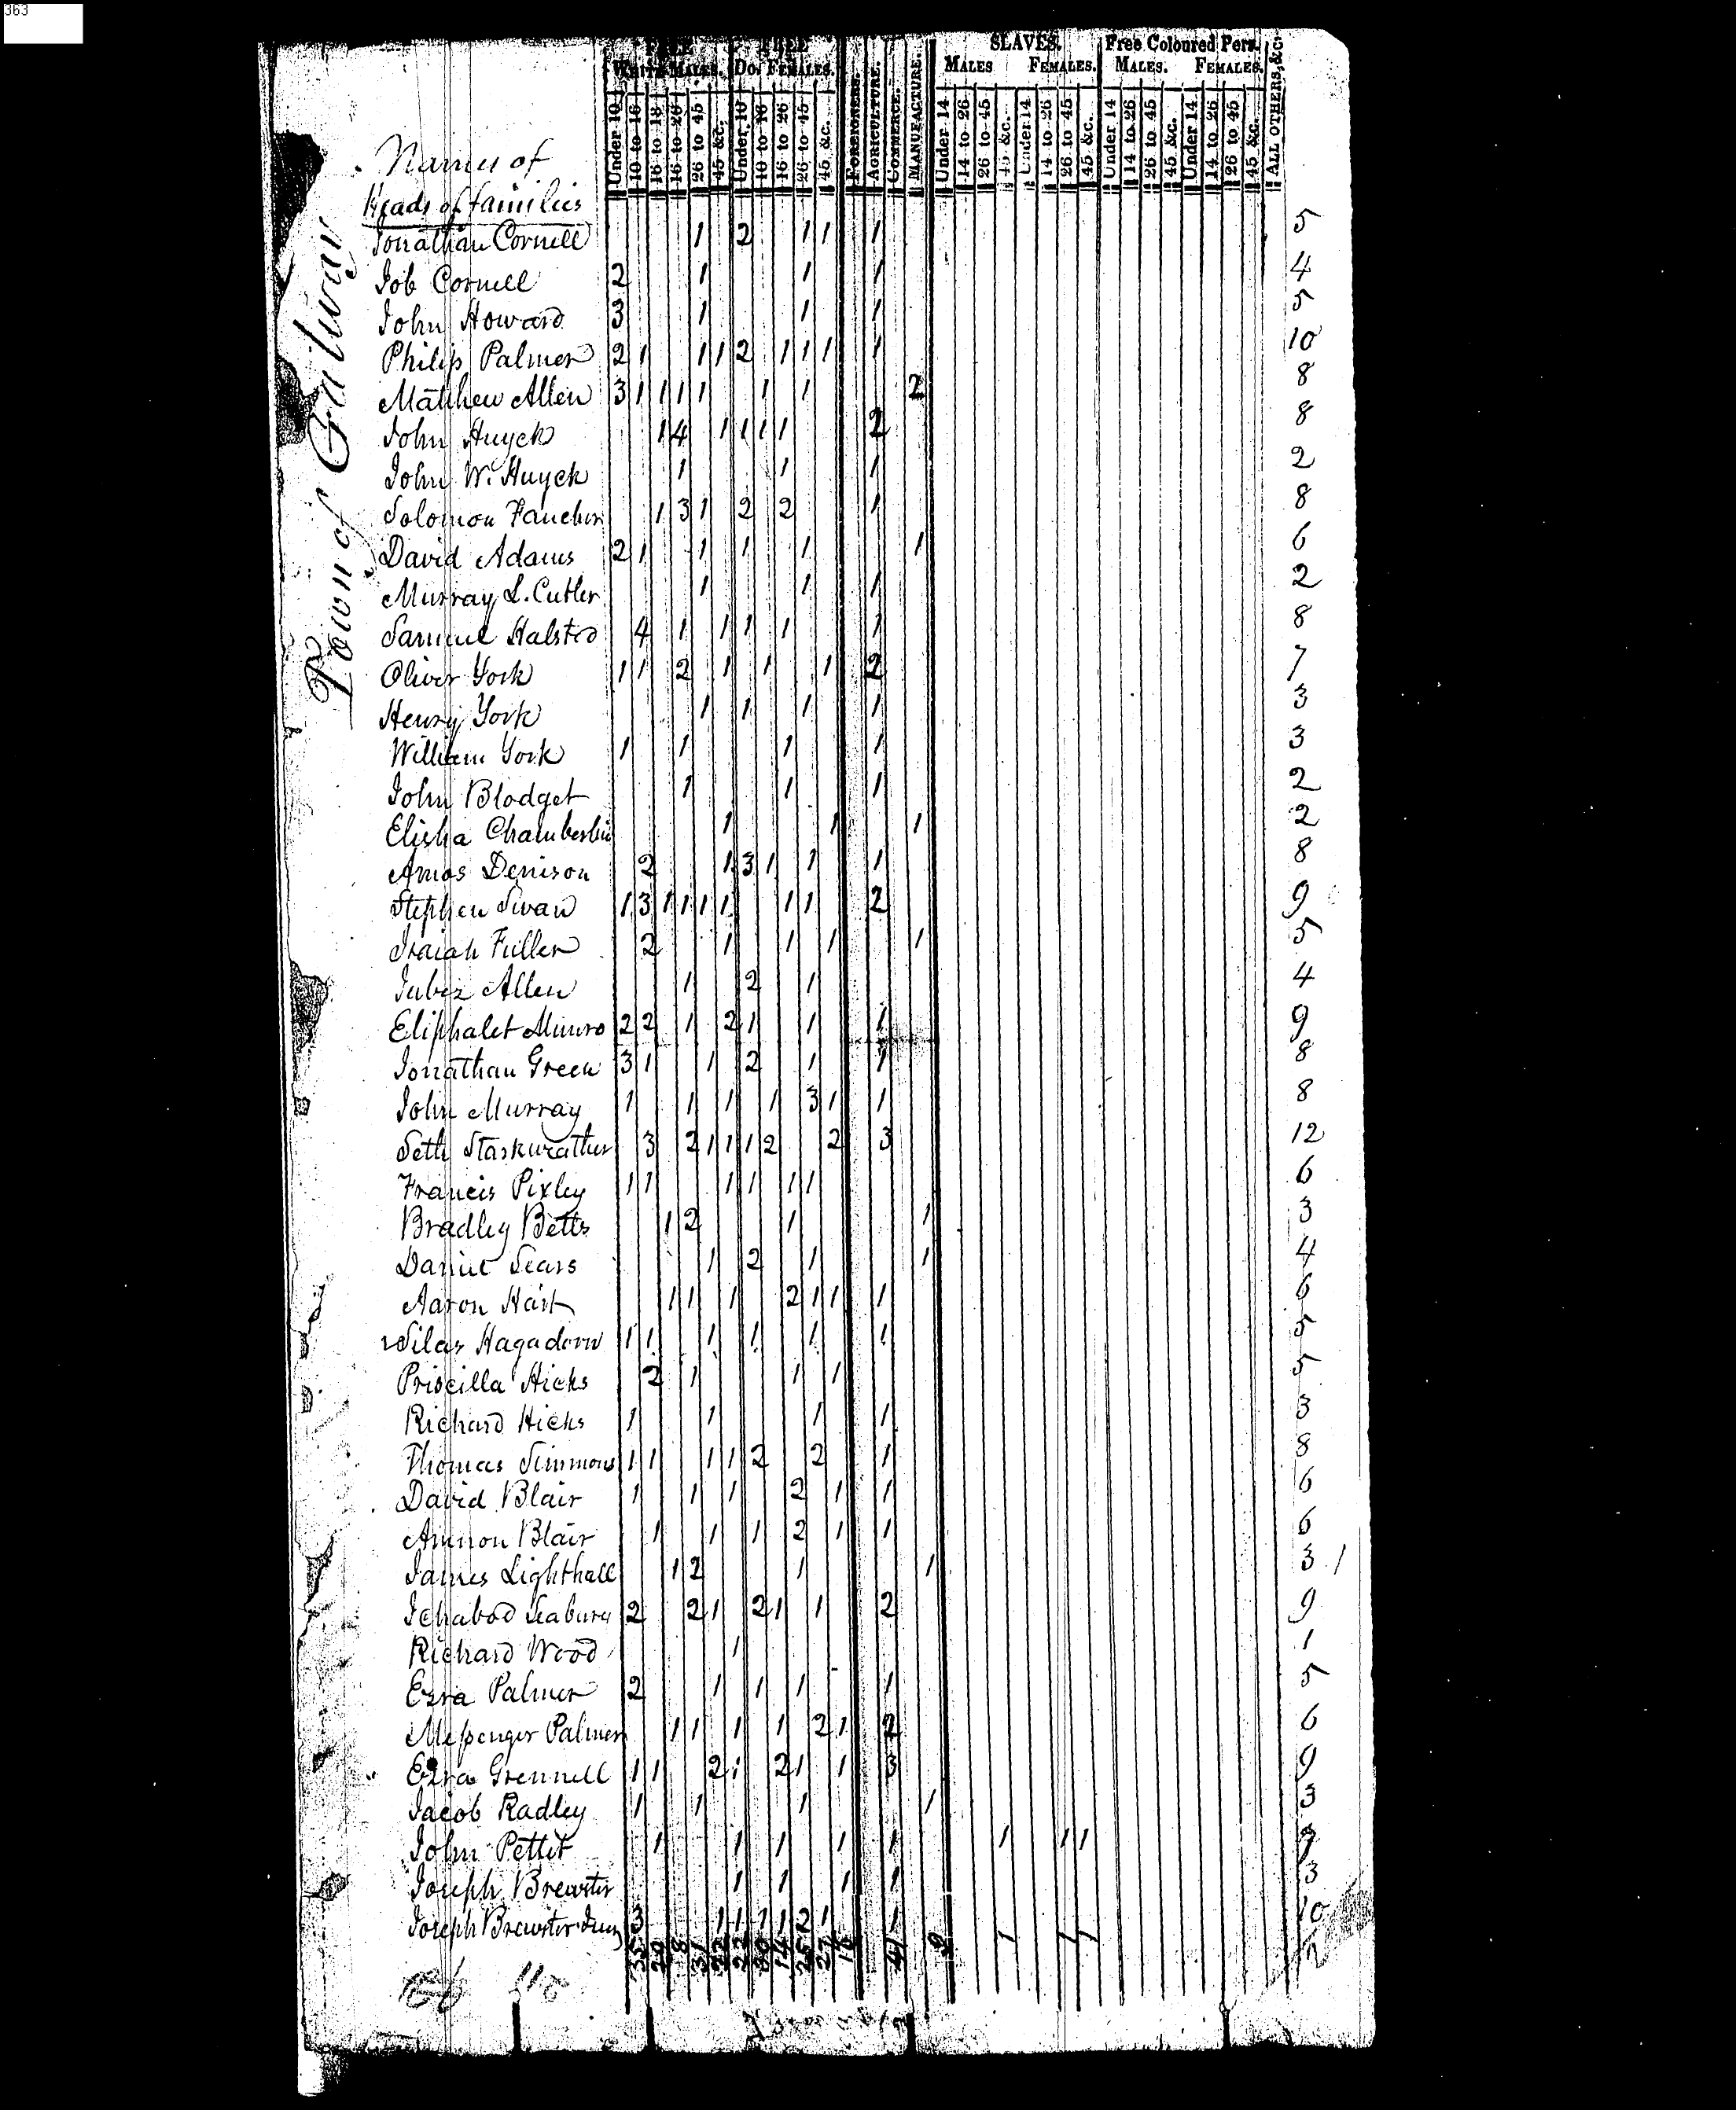 363
FREE WHITE MALES. FREE Do. FEMALES. FOREIGNERS. AGRICULTURE. COMMERCE. MANUFACTURE. SLAVES. MALES FEMALES. Free Coloured Pers. MALES. FEMALES. ALL OTHERS, &c.
Under 10 10 to 16 16 to 18 16 to 26 26 to 45 45 &c. Under 10 10 to 16 16 to 26 26 to 45 45 &c. Under 14 14 to 26 26 to 45 45 &c. Under 14 14 to 26 26 to 45 45 &c. Under 14 14 to 26 26 to 45 45 &c. Under 14 14 to 26 26 to 45 45 &c.
Names of
Heads of families
Town of Galway
Jonathan Cornell 1 2 1 1 1 5
Job Cornell 2 1 1 1 4
John Howard 3 1 1 1 5
Philip Palmer 2 1 1 1 2 1 1 1 1 10
Matthew Allen 3 1 1 1 1 1 1 2 8
John Huyck 1 4 1 1 1 1 2 8
John W. Huyck 1 1 1 2
Solomon Fancher 1 3 1 2 2 1 8
David Adams 2 1 1 1 1 1 6
Murray L. Cutler 1 1 1 2
Samuel Halsted 4 1 1 1 1 1 8
Oliver York 1 1 2 1 1 1 2 7
Henry York 1 1 1 1 3
William York 1 1 1 1 3
John Blodget 1 1 1 2
Elisha Chamberlin 1 1 1 2
Amos Denison 2 1 3 1 1 1 8
Stephen Swan 1 3 1 1 1 1 1 1 2 9
Isaiah Fuller 2 1 1 1 1 5
Jabez Allen 1 2 1 4
Eliphalet Munro 2 2 1 2 1 1 1 9
Jonathan Green 3 1 1 2 1 1 8
John Murray 1 1 1 1 3 1 1 8
Seth Starkweather 3 2 1 1 1 2 2 3 12
Francis Pixley 1 1 1 1 1 1 6
Bradley Betts 1 2 1 1 3
Daniel Sears 1 2 1 1 4
Aaron Hart 1 1 1 2 1 1 1 6
Silas Hagadorn 1 1 1 1 1 1 5
Priscilla Hicks 2 1 1 1 5
Richard Hicks 1 1 1 1 3
Thomas Simmons 1 1 1 1 2 2 1 8
David Blair 1 1 1 2 1 1 6
Amnon Blair 1 1 1 2 1 1 6
James Lighthall 1 2 1 1 3 1
Ichabod Seabury 2 2 1 2 1 1 2 9
Richard Wood 1 1
Ezra Palmer 2 1 1 1 1 5
Messenger Palmer 1 1 1 1 2 1 2 6
Ezra Grennell 1 1 2 1 2 1 1 3 9
Jacob Radley 1 1 1 1 3
John Pettit 1 1 1 1 1 1 1 1 7
Joseph Brewster 1 1 1 1 3
Joseph Brewster Jun 3 1 1 1 1 2 1 1 10